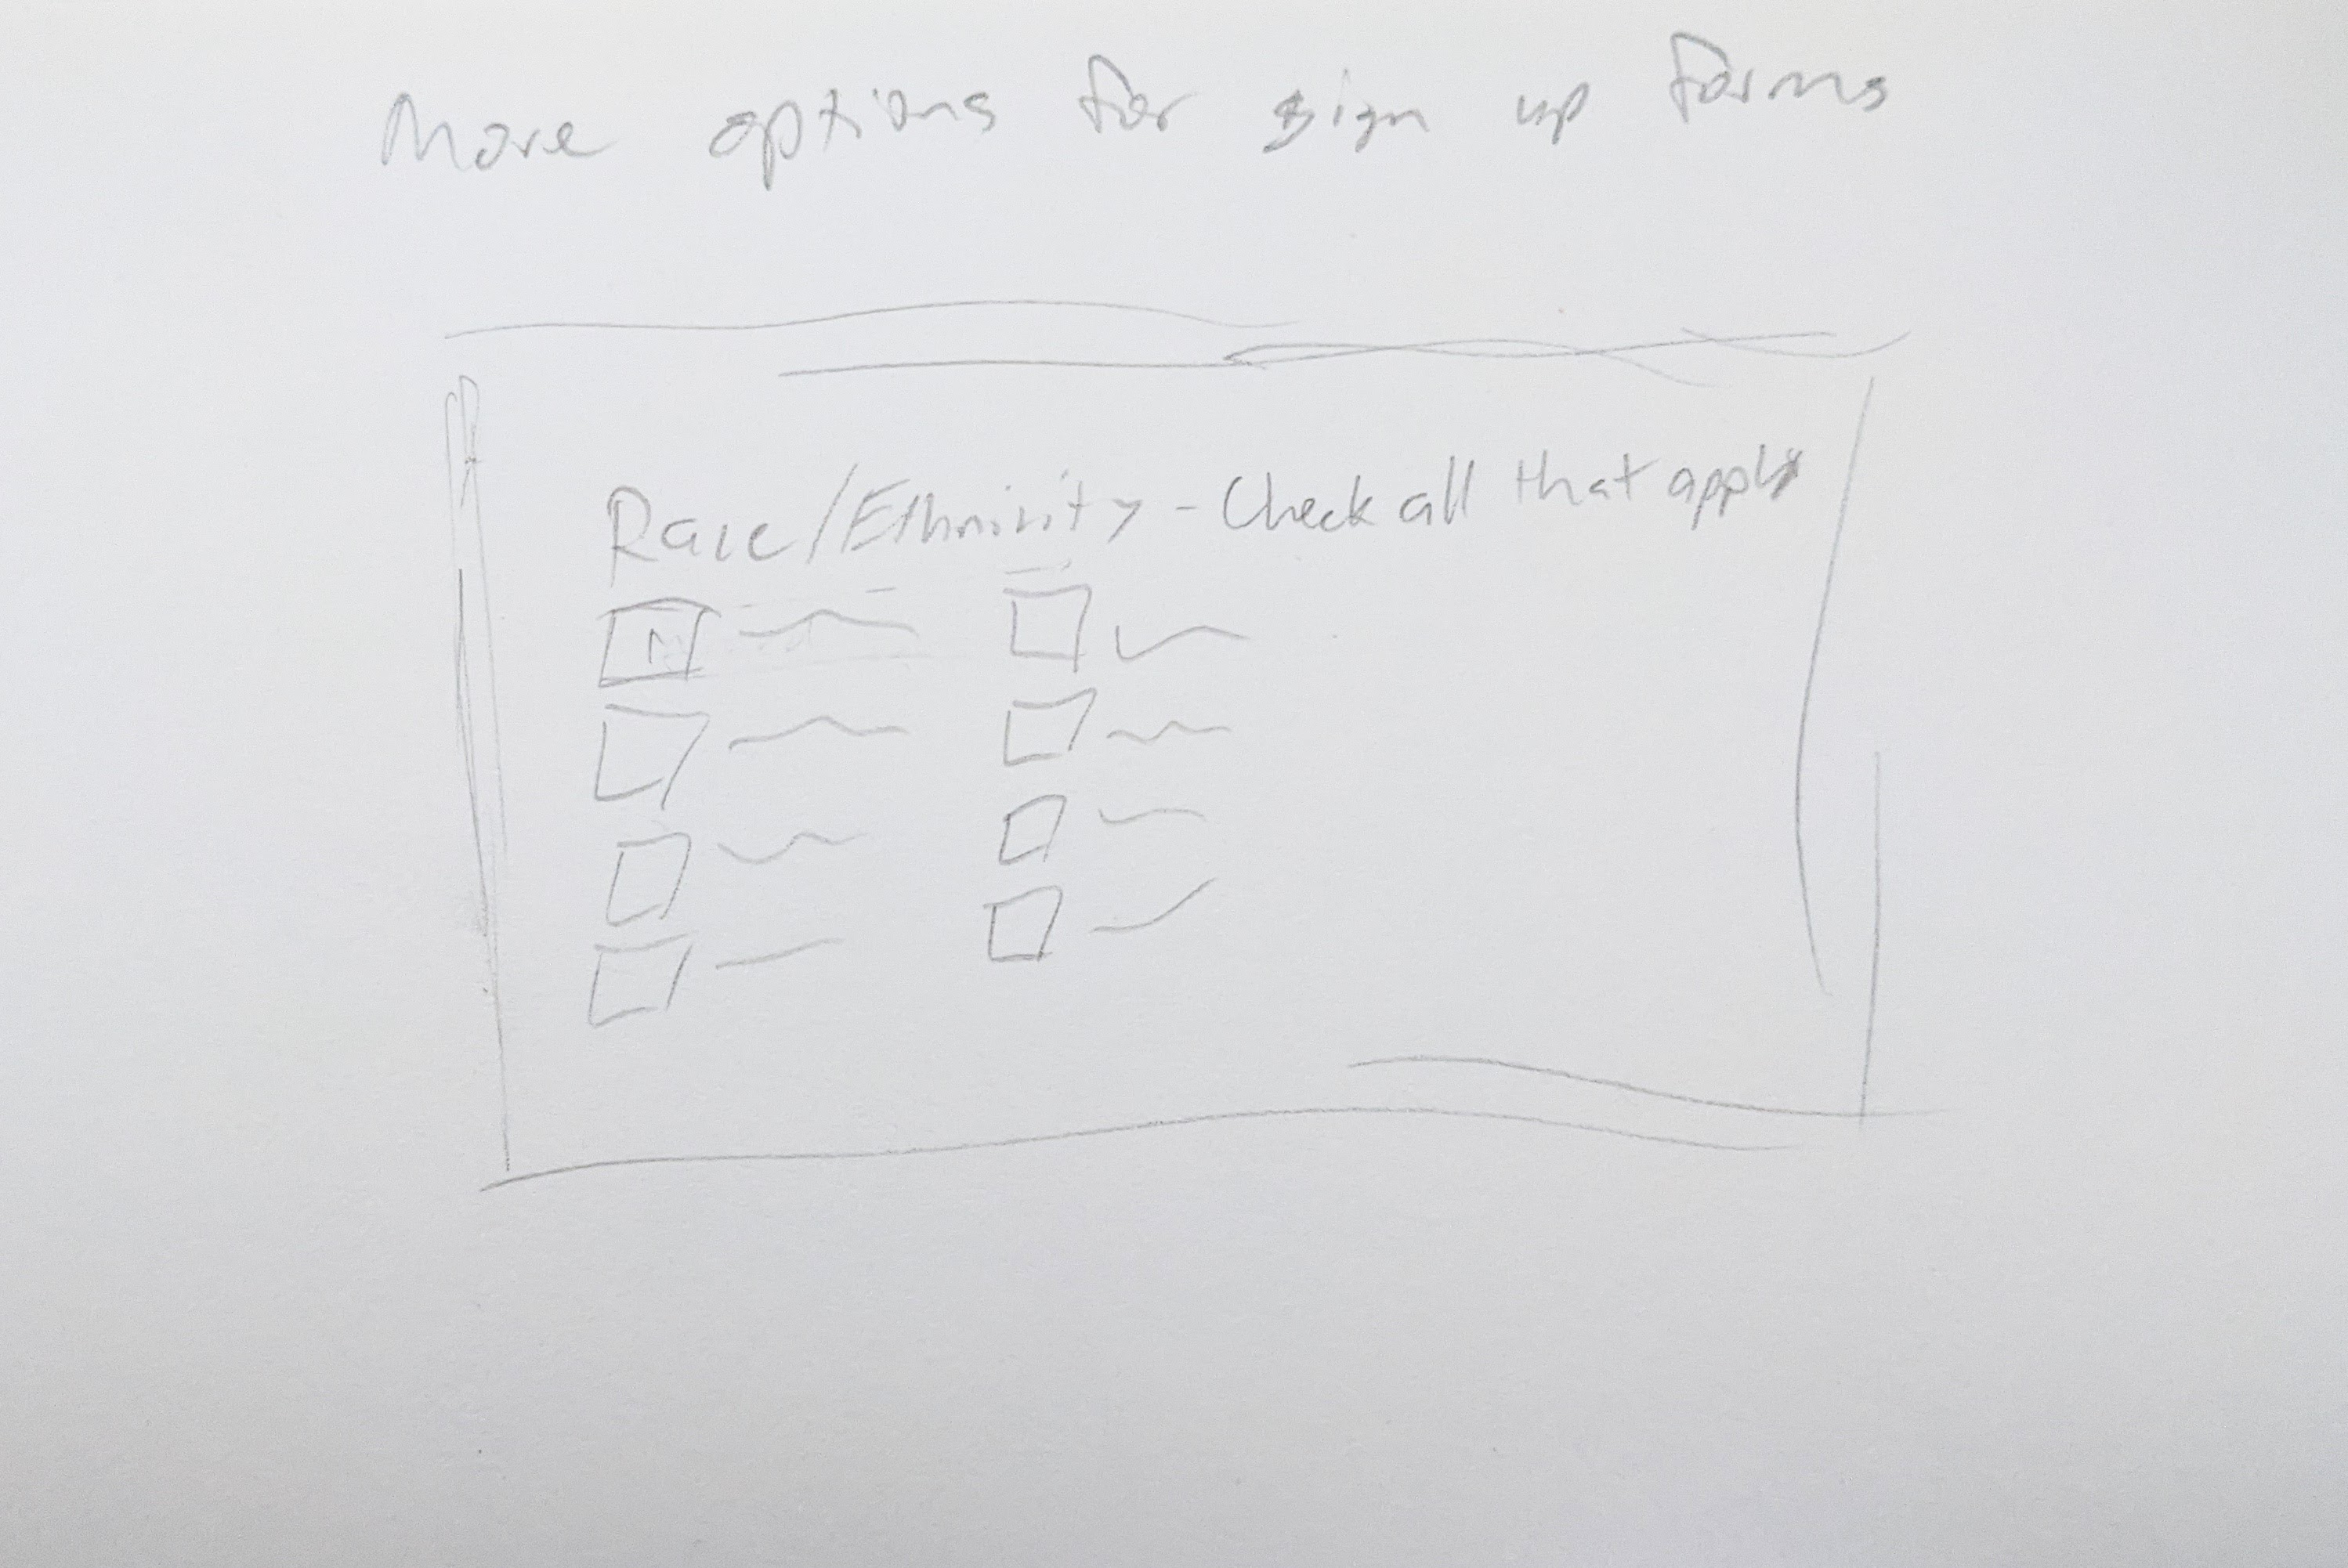 More options for sign up forms
Race/Ethnicity - Check all that apply